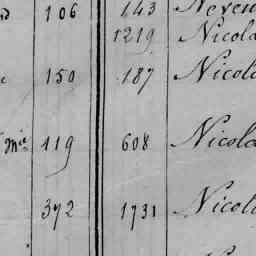 106 143
1219 Nicol
150 187 Nicol
Mie 119 608 Nicol
372 1731 Nicol